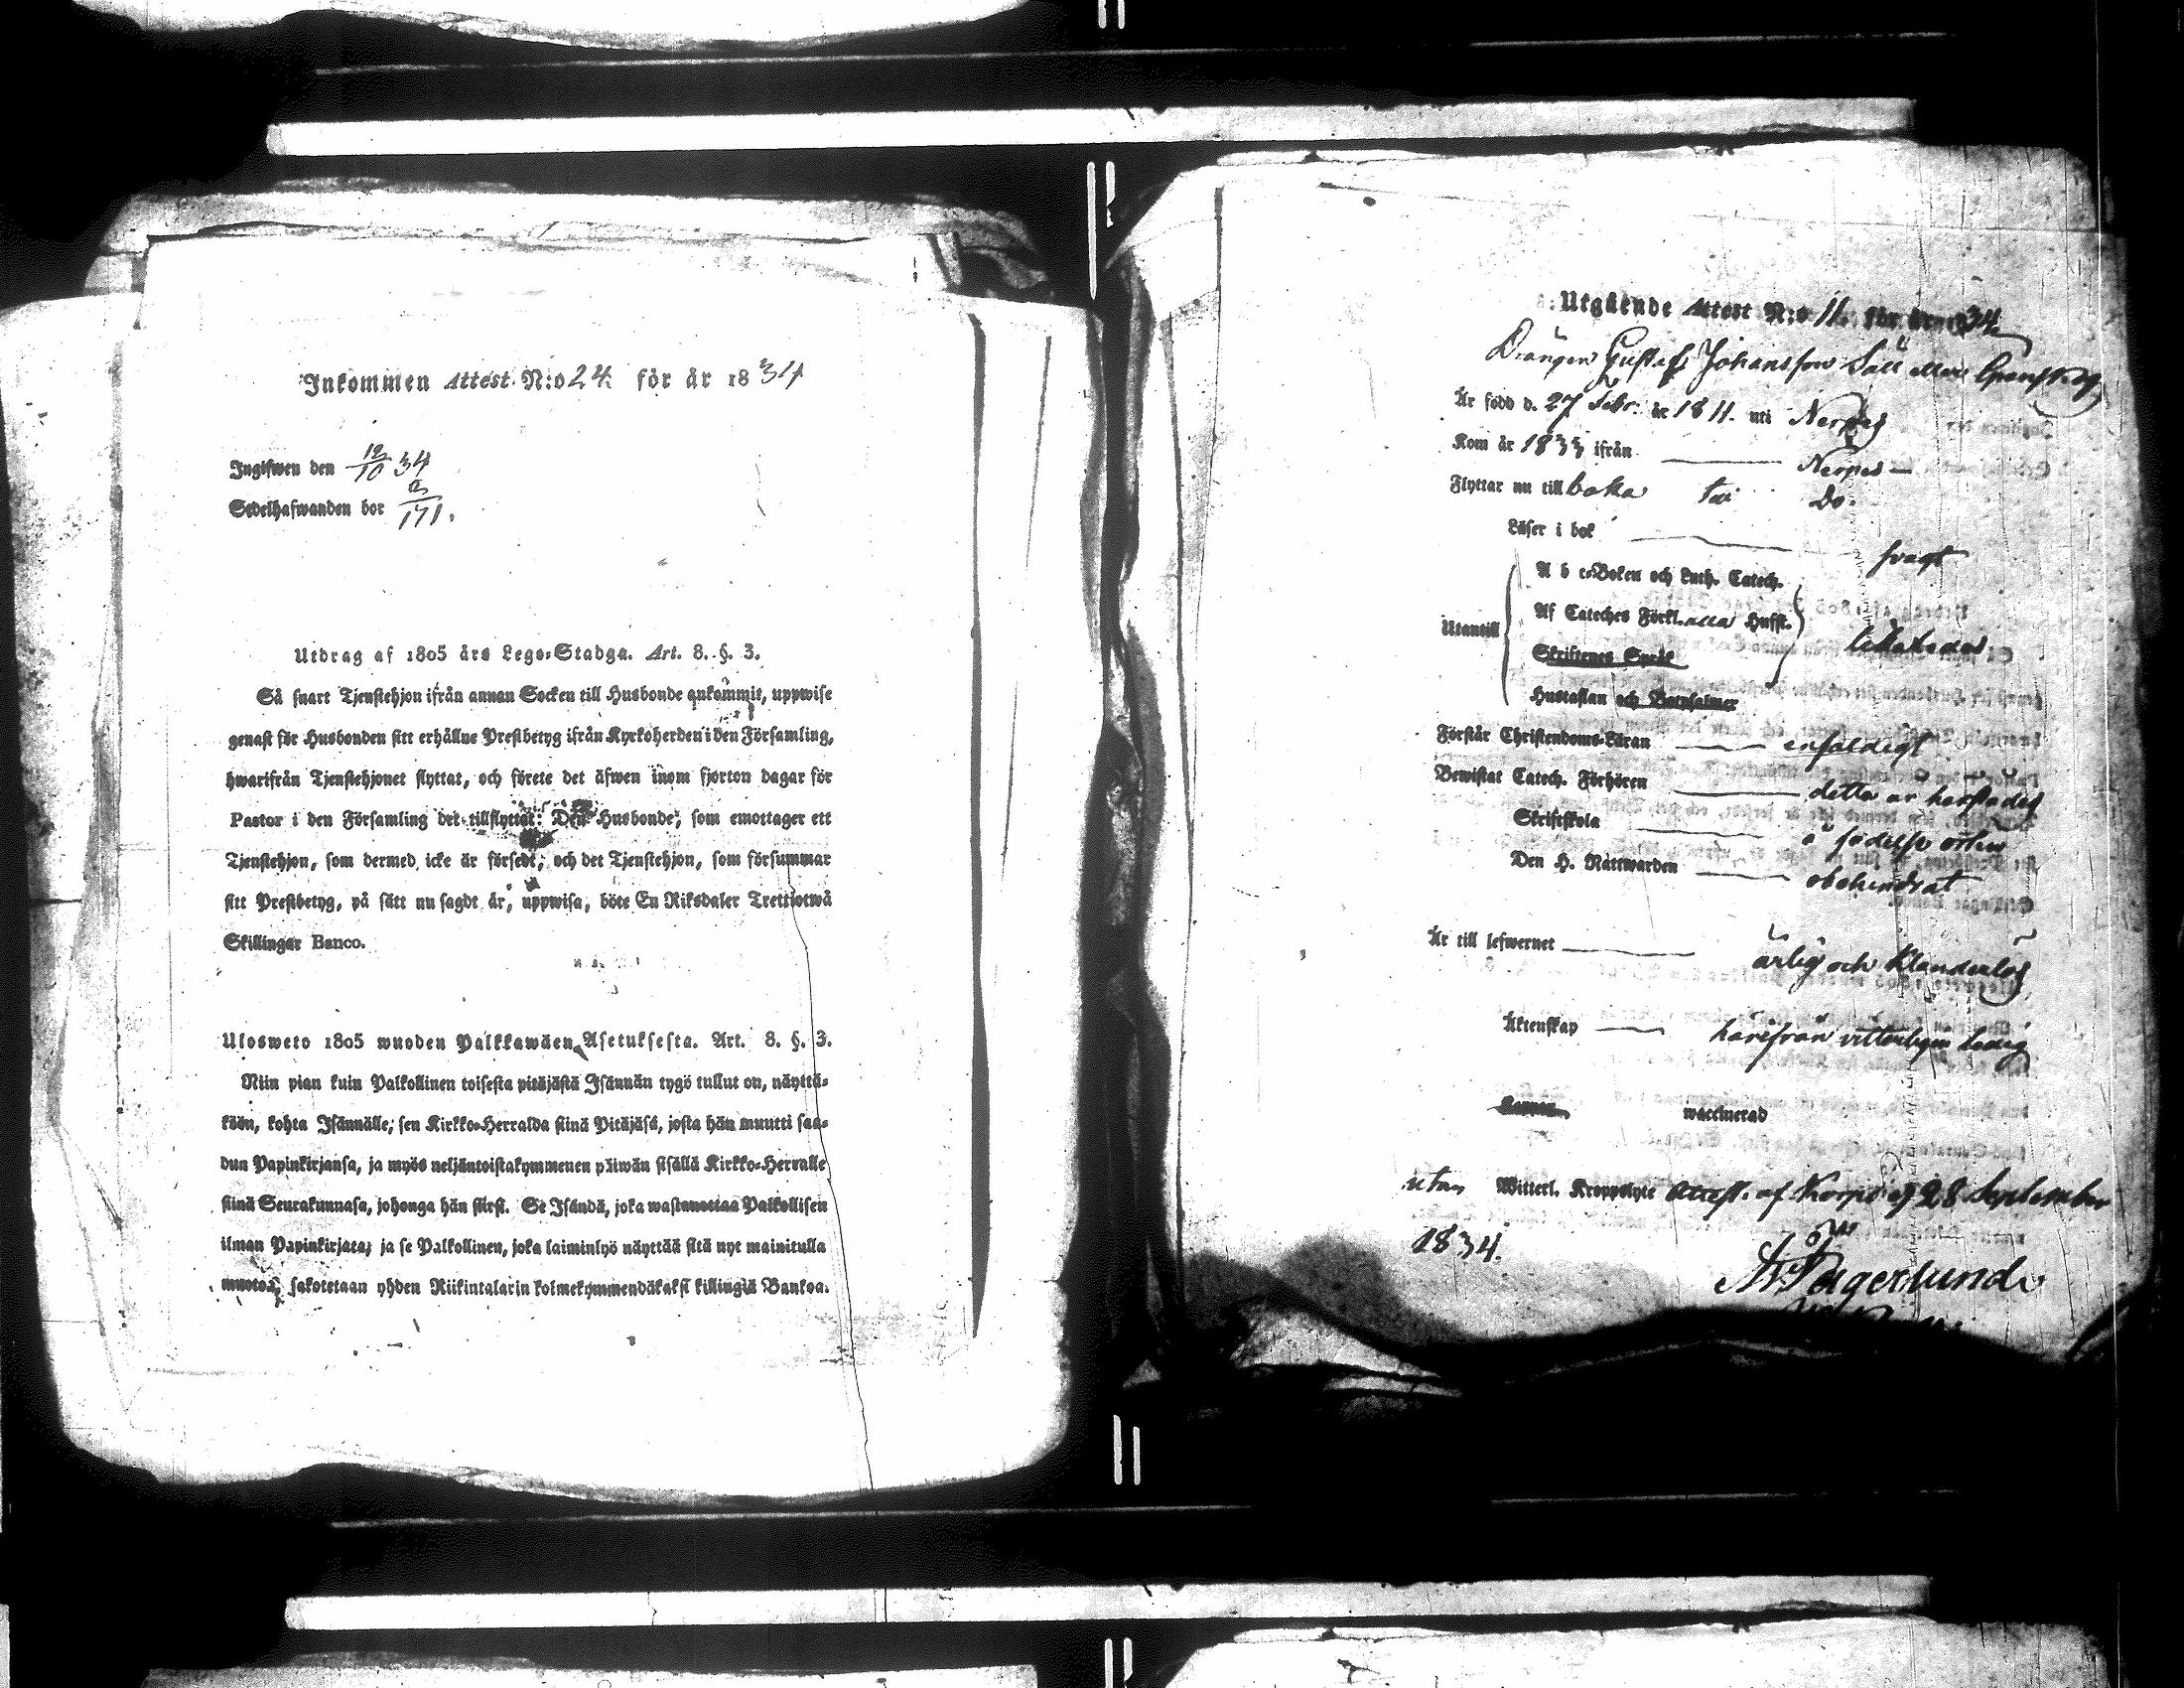 Inkommen Attest N:o 24. för år 1834
Ingifwen den 12/10 34
Sedelhafwanden bor 171.
Utdrag af 1805 års Lego-Stadga. Art. 8. §. 3.
Så snart Tjenstehjon ifrån annan Socken till Husbonde ankommit, uppwise
genast för Husbonden sitt erhållne Prestbetyg ifrån Kyrkoherden i den Församling,
hwarifrån Tjenstehjonet flyttat, och förete det äfwen inom fjorton dagar för
Pastor i den Församling det tillflyttat: Den Husbonde, som emottager ett
Tjenstehjon, som dermed icke är försedt, och det Tjenstehjon, som försummar
sitt Prestbetyg, på sätt nu sagdt är, uppwisa, böte En Riksdaler Trettiotwå
Skillingar Banco.
Ulosweto 1805 wuoden Palkkawäen Asetuksesta. Art. 8. §. 3.
Niin pian kuin Palkollinen toisesta pitäjästä Isännän tygö tullut on, näyttä-
kään, kohta Isännälle, sen Kirkko-Herralda siinä Pitäjäsä, josta hän muutti saa-
dun Papinkirjansa, ja myös neljäntoistakymmenen päiwän sisällä Kirkko-Herralle
siinä Seurakunnasa, johonga hän siirst. Se Isändä, joka wastanottaa Palkollisen
ilman Papinkirjata, ja se Palkollinen, joka laiminlyö näyttää sitä nyt mainitulla
muotoa, sakotetaan yhden Riikintalarin kolmekymmendäkaksi killingiä Bankoa.
Utgående Attest N:o 11. för år 1834.
Drängen Gustaf Johansson Säll eller
Är född d. 27 Febr. år 1811. uti Nerpes
Kom år 1833 ifrån Nerpes
Flyttar nu till baka till Do.
Läser i bok svagt
A b c-Boken och Luth. Catech.
Utantill Af Cateches Förkl. alla Husst.
Skriftenes Språk likaledes
Hustaflan och Botpsalmer
Förstår Christendoms-Läran enfaldigt
Bewistat Catech. Förhören detta år härstädes
Skriftskola å födelse orten
Den H. Nattwarden obehindrat
Är till lefwernet ärlig och klanderlös
Äktenskap härifrån vitterligen ledig
Koppor waccinerad
utan Witterl. Kroppslyte attest. af Korpo d 28 September
1834.